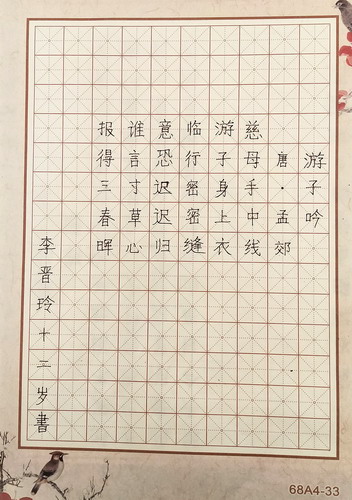 游子吟
唐·孟郊
慈母手中线
游子身上衣
临行密密缝
意恐迟迟归
谁言寸草心
报得三春晖
李晋玲十二岁書
68A4-33